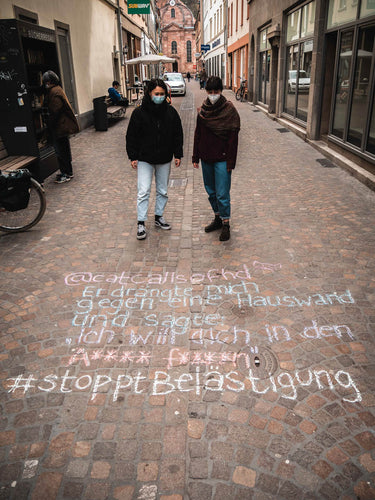 SUBWAY
@catcallsofhd
Er drängte mich
gegen eine Hauswand
und sagte
"Ich will dich in den
A**** f****n"
#stopptBelästigung